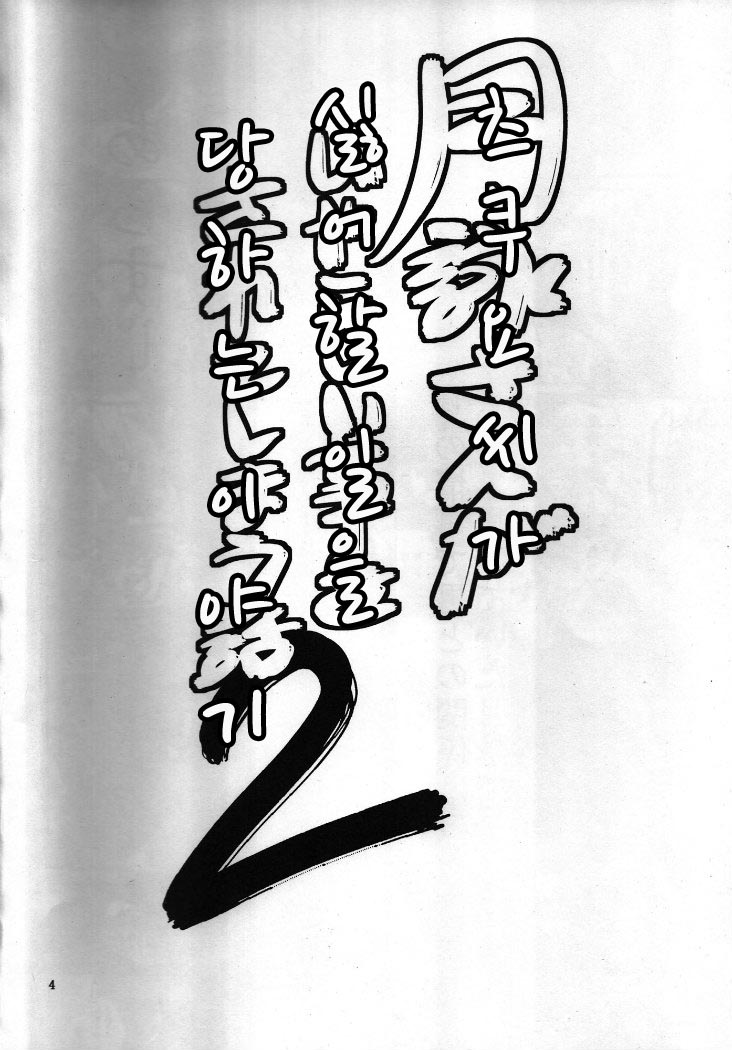 츠쿠요씨가
싫어할 일을
당하는 이야기
2
4